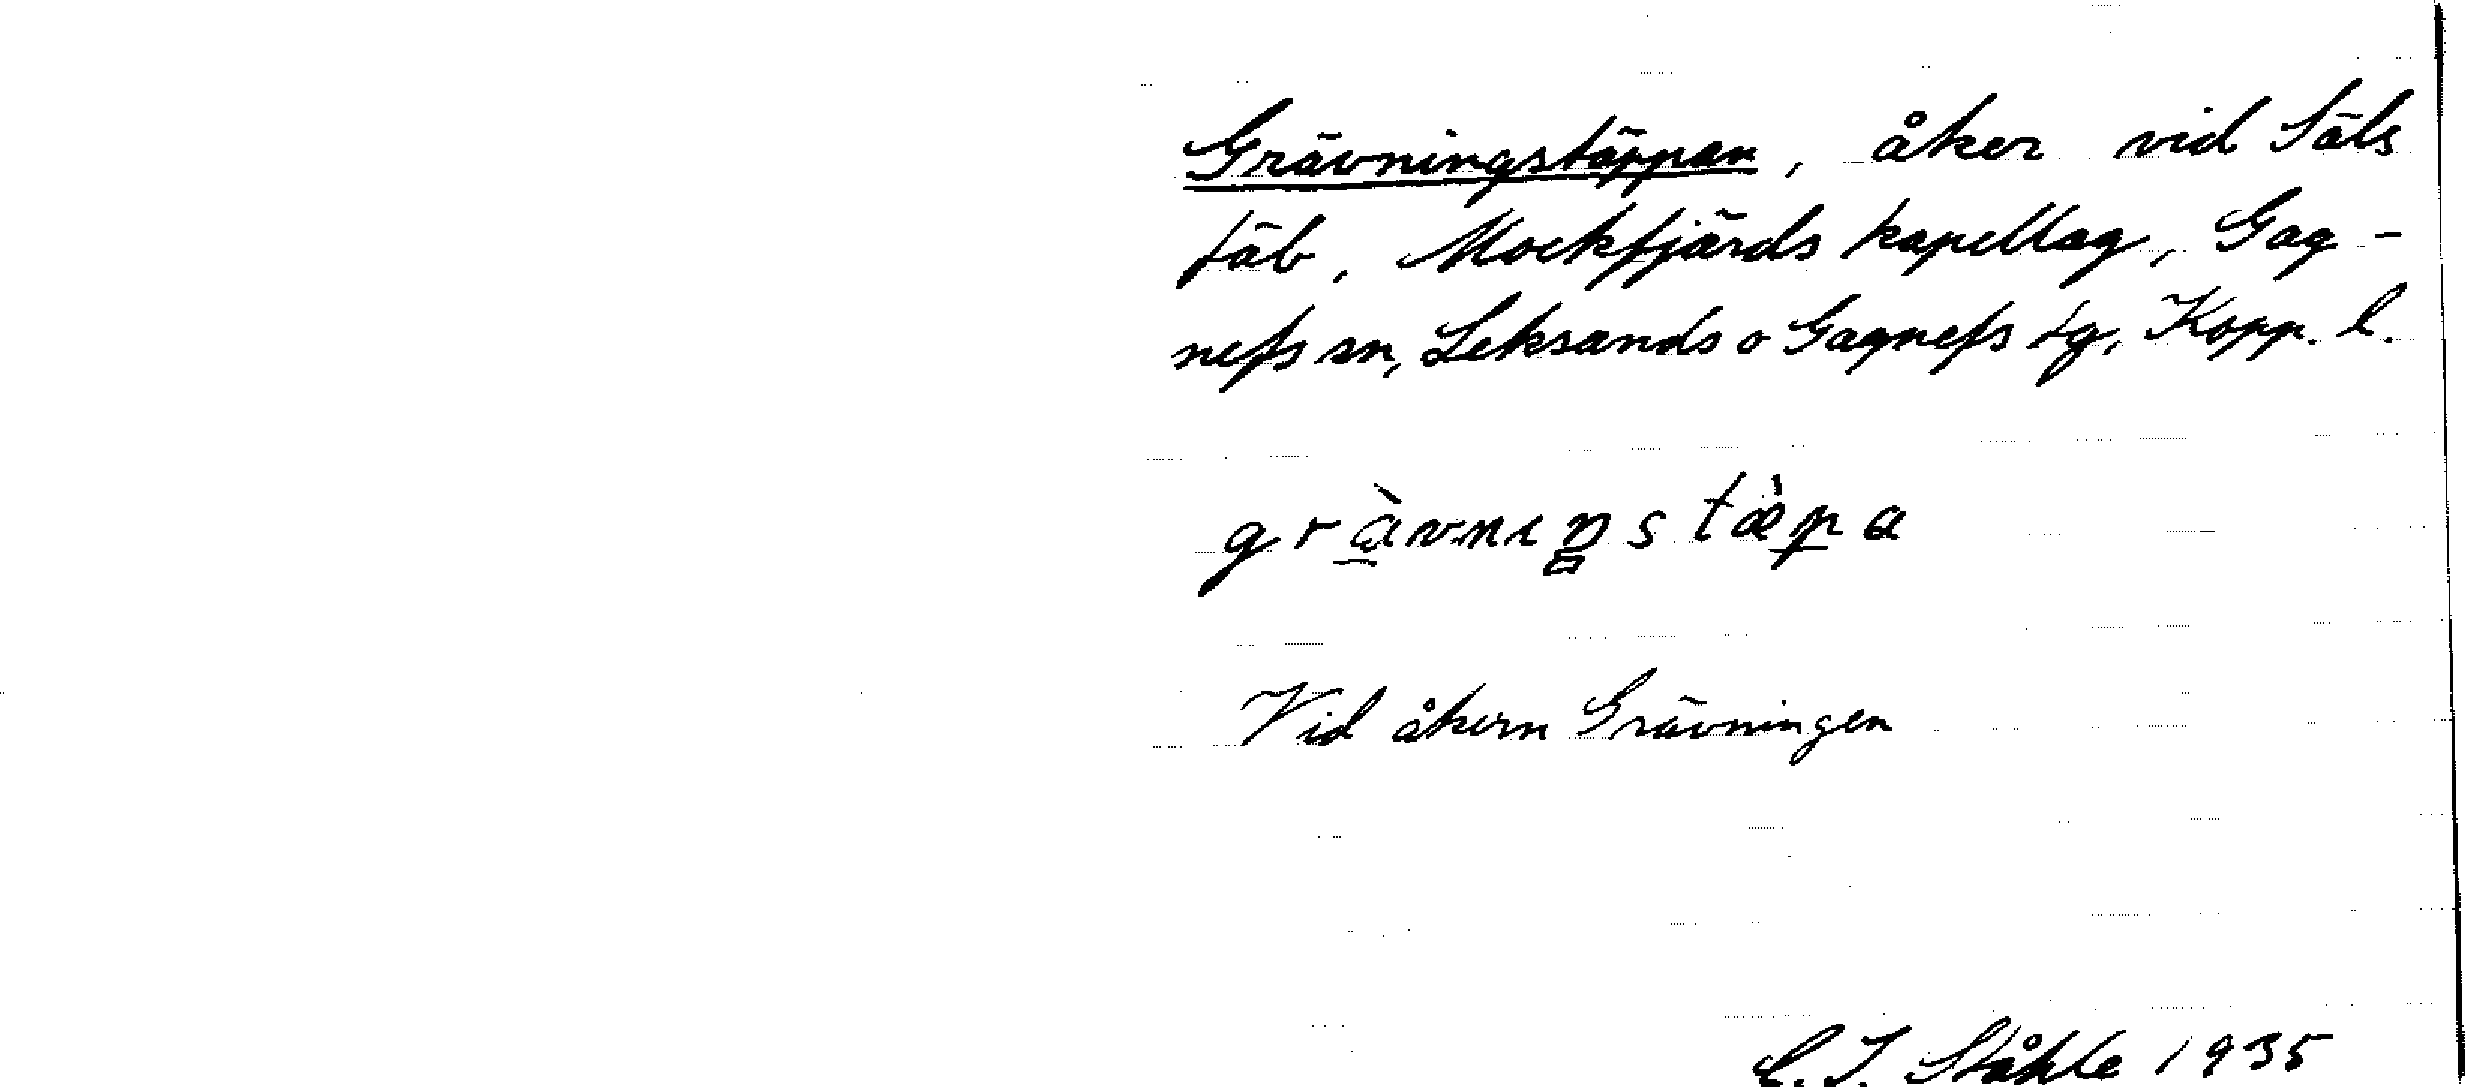 Grävningstäppan, åker vid Säls
fäb, Mockfjärds kapellag, Gag-
nefs sn, Leksands o Gagnefs tg, Kopp. l.
gràvnıŋstæ̀pa
Vid åkern Grävningen
C. I. Ståhle 1935